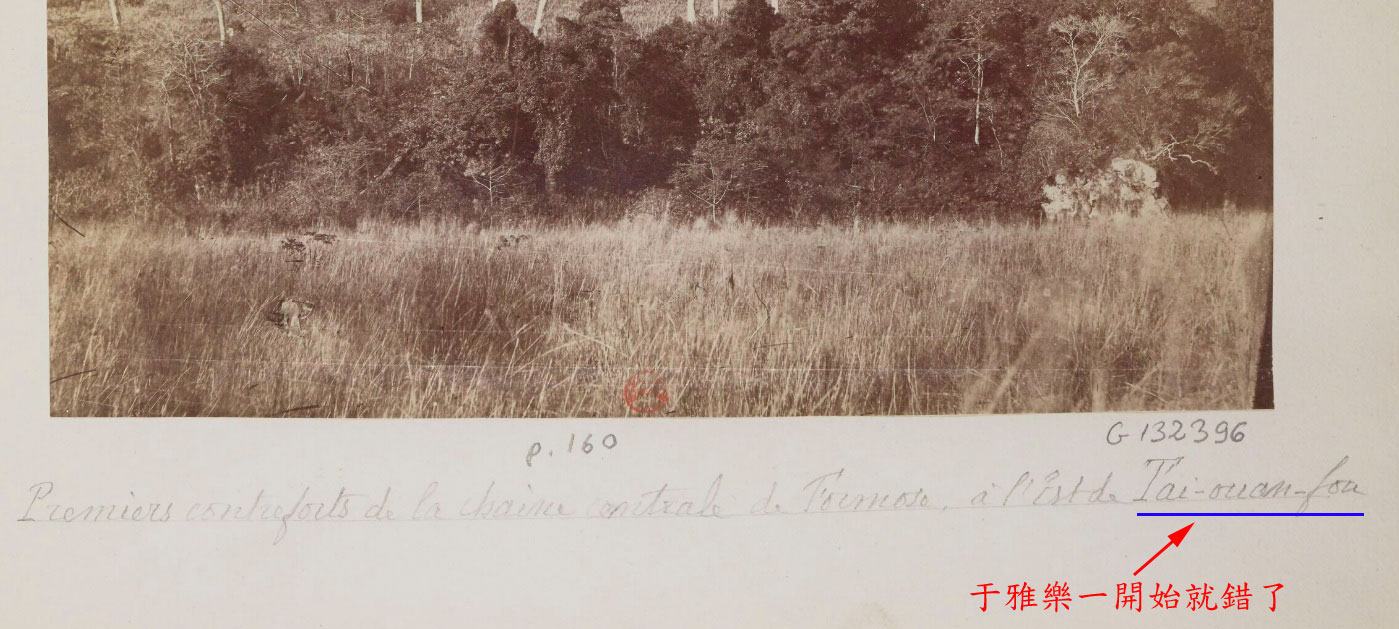 p. 160
G 132396
Premiers contreforts de la chaine centrale de Formose, à l'Est de T'ai-ouan-fou
于雅樂一開始就錯了